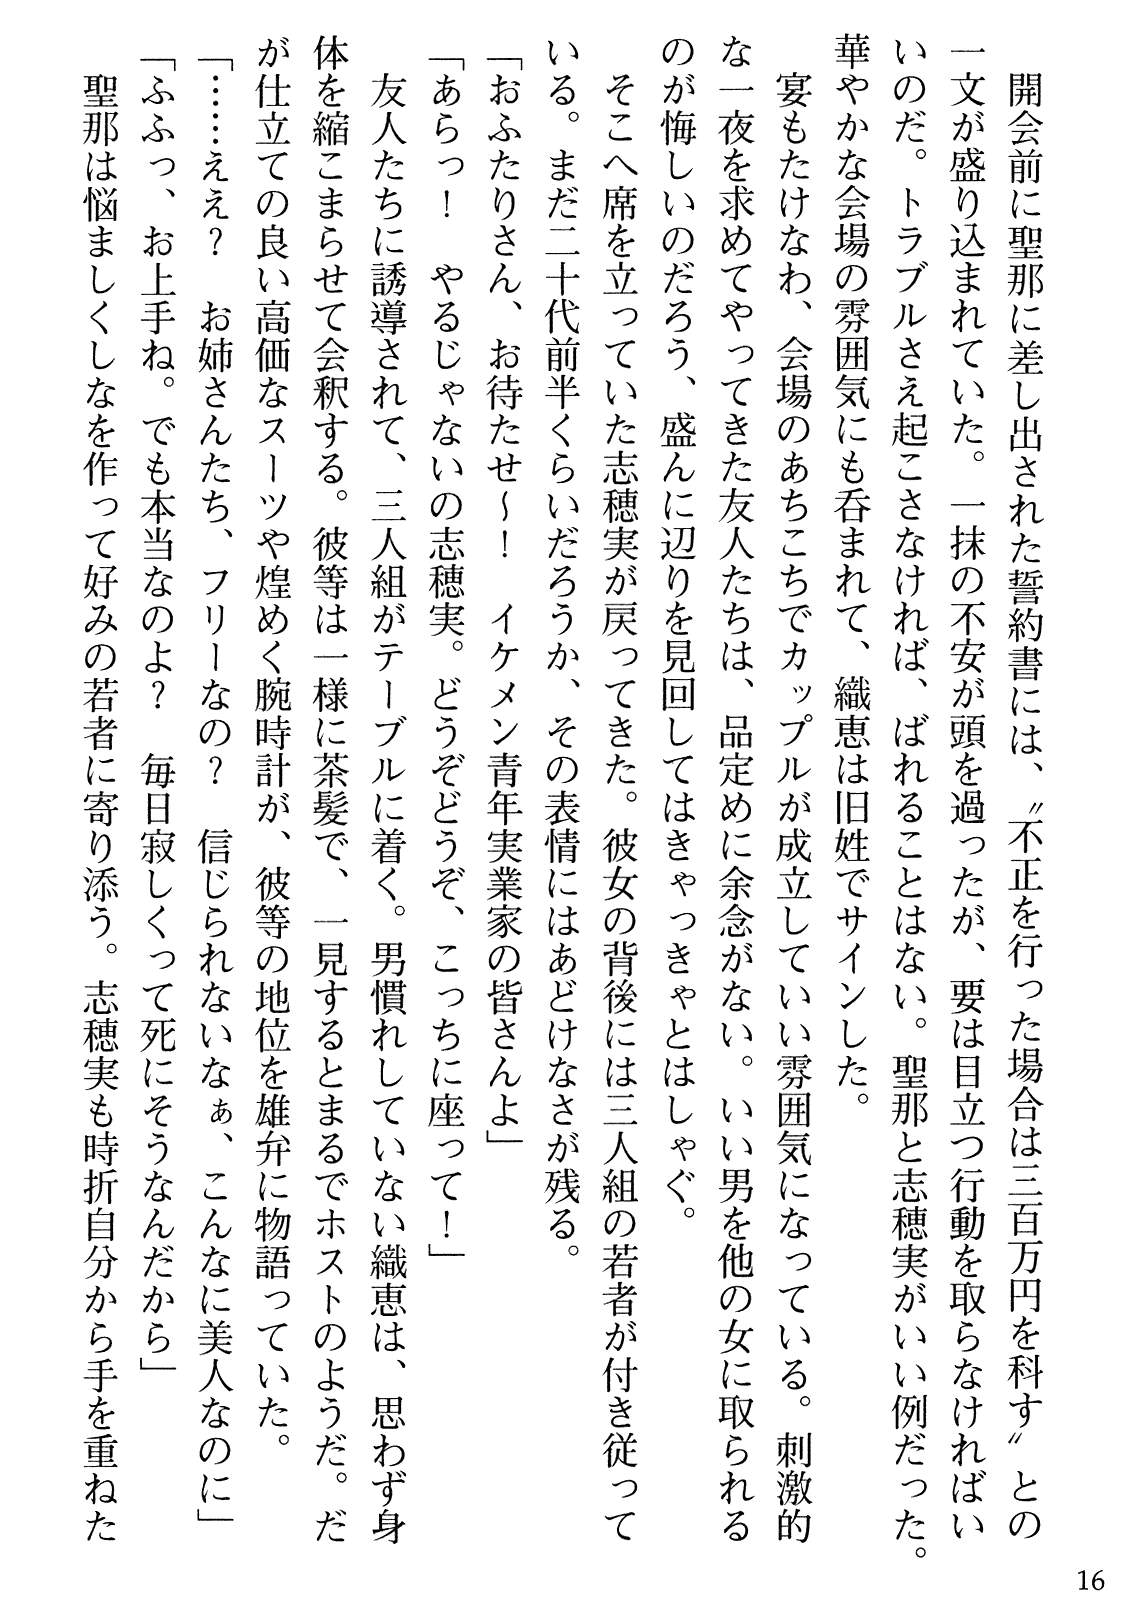 開会前に聖那に差し出された誓約書には、〝不正を行った場合は三百万円を科す〟との
一文が盛り込まれていた。一抹の不安が頭を過ったが、要は目立つ行動を取らなければい
いのだ。トラブルさえ起こさなければ、ばれることはない。聖那と志穂実がいい例だった。
華やかな会場の雰囲気にも呑まれて、織恵は旧姓でサインした。
　宴もたけなわ、会場のあちこちでカップルが成立していい雰囲気になっている。刺激的
な一夜を求めてやってきた友人たちは、品定めに余念がない。いい男を他の女に取られる
のが悔しいのだろう、盛んに辺りを見回してはきゃっきゃとはしゃぐ。
　そこへ席を立っていた志穂実が戻ってきた。彼女の背後には三人組の若者が付き従って
いる。まだ二十代前半くらいだろうか、その表情にはあどけなさが残る。
「おふたりさん、お待たせ～！　イケメン青年実業家の皆さんよ」
「あらっ！　やるじゃないの志穂実。どうぞどうぞ、こっちに座って！」
　友人たちに誘導されて、三人組がテーブルに着く。男慣れしていない織恵は、思わず身
体を縮こまらせて会釈する。彼等は一様に茶髪で、一見するとまるでホストのようだ。だ
が仕立ての良い高価なスーツや煌めく腕時計が、彼等の地位を雄弁に物語っていた。
「……ええ？　お姉さんたち、フリーなの？　信じられないなぁ、こんなに美人なのに」
「ふふっ、お上手ね。でも本当なのよ？　毎日寂しくって死にそうなんだから」
　聖那は悩ましくしなを作って好みの若者に寄り添う。志穂実も時折自分から手を重ねた
16